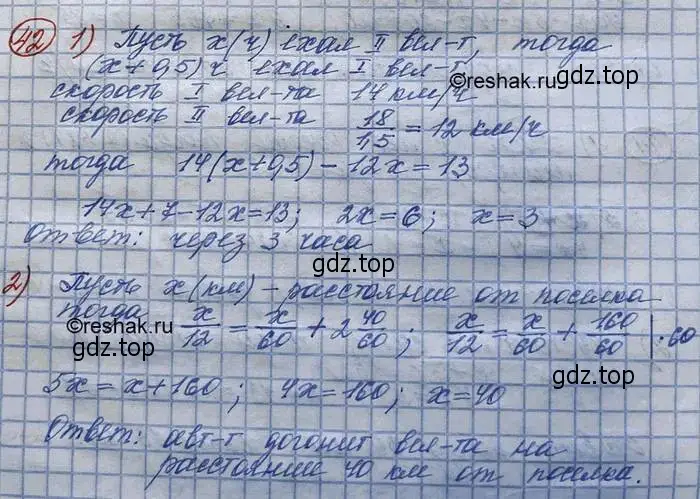 42 1) Пусть х(ч) ехал II вел-т, тогда
(х+0,5) ч ехал I вел-т,
©reshak.ru
скорость I вел-та 14 км/ч
gdz.top
скорость II вел-та 18/1,5 = 12 км/ч
тогда 14(х+0,5) - 12х = 13
14х+7-12х=13; 2х=6; х=3
Ответ: через 3 часа
gdz.top
2) Пусть х(км) - расстояние от поселка
тогда х/12 = х/60 + 2 40/60; х/12 = х/60 + 160/60 |·60
©reshak.ru
5х = х+160; 4х=160; х=40
gdz.top
Ответ: авт-т догонит вел-та на
расстояние 40 км от поселка.
©reshak.ru
gdz.top